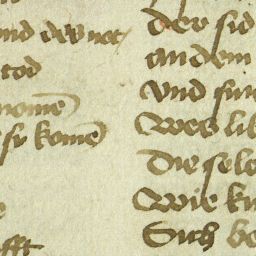 vnd der not
tod
nomē
sy komē
fft
der sid
an dem
vnd sin
wes lib
die selb
wie ku
Sich be